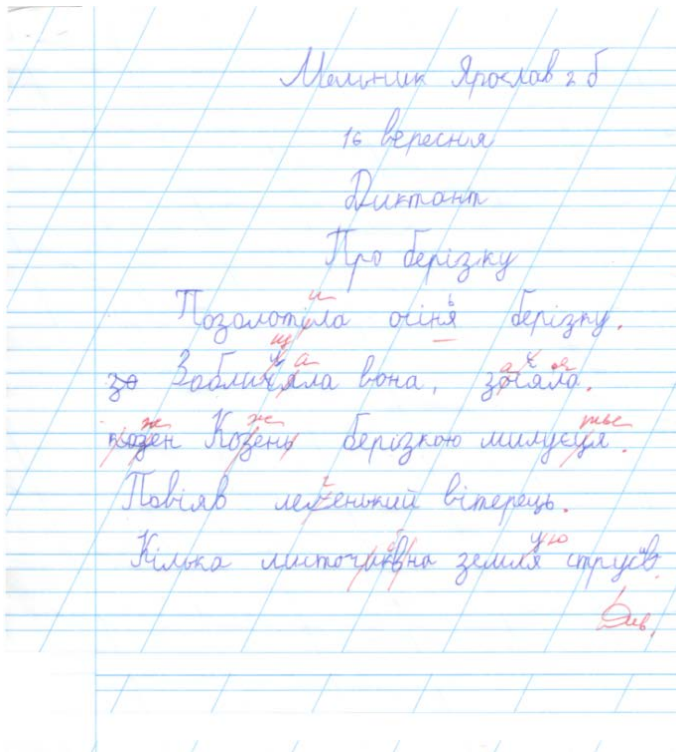 Мельник Ярослав 2 б
16 вересня
Диктант
Про берізку
Позолотіла осіня берізку.
зо Забличяла вона, зосяло.
козен Козень берізкою милуєця.
Повіяв лехенький вітерець.
Кілька листочиквна земля струсів